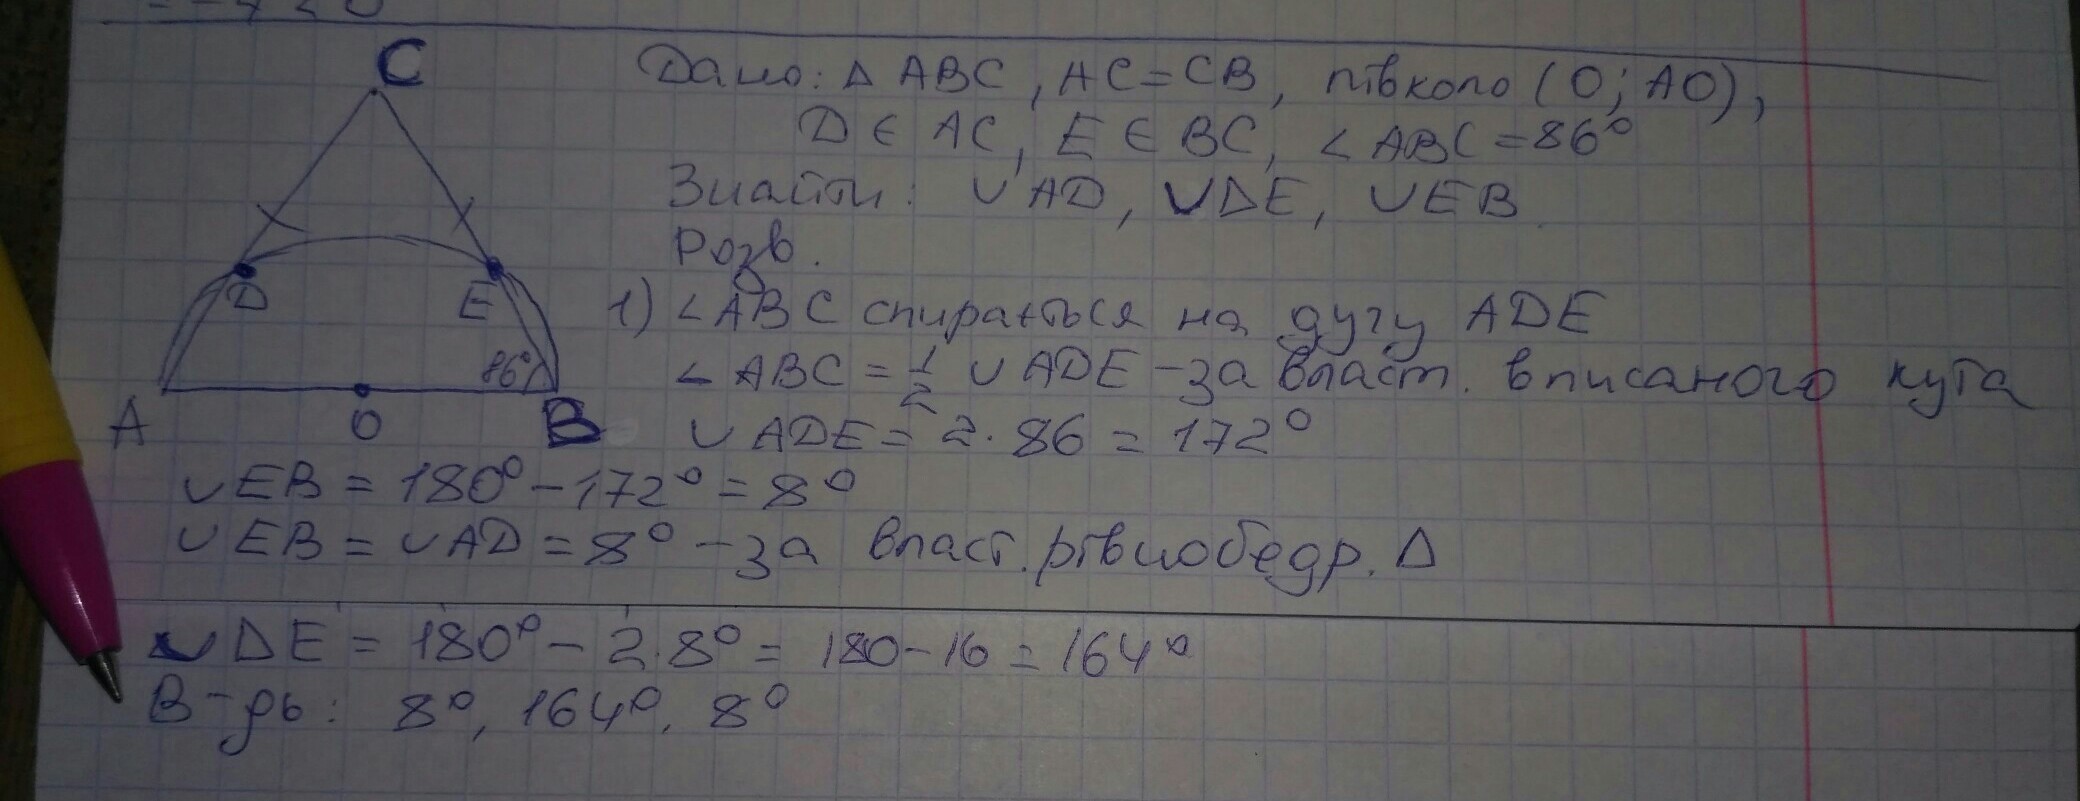 C
Дано: Δ ABC, AC=CB, півколо (O; AO),
D ∈ AC, E ∈ BC, ∠ABC=86°
Знайти: ∪AD, ∪DE, ∪EB
Розв.
D E
1) ∠ABC спирається на дугу ADE
86°
∠ABC = 1/2 ∪ADE – за власт. вписаного кута
A O B
∪ADE = 2·86 = 172°
∪EB = 180° – 172° = 8°
∪EB = ∪AD = 8° – за власт. рівнобедр. Δ
∪DE = 180° – 2·8° = 180–16 = 164°
В-дь: 8°, 164°, 8°